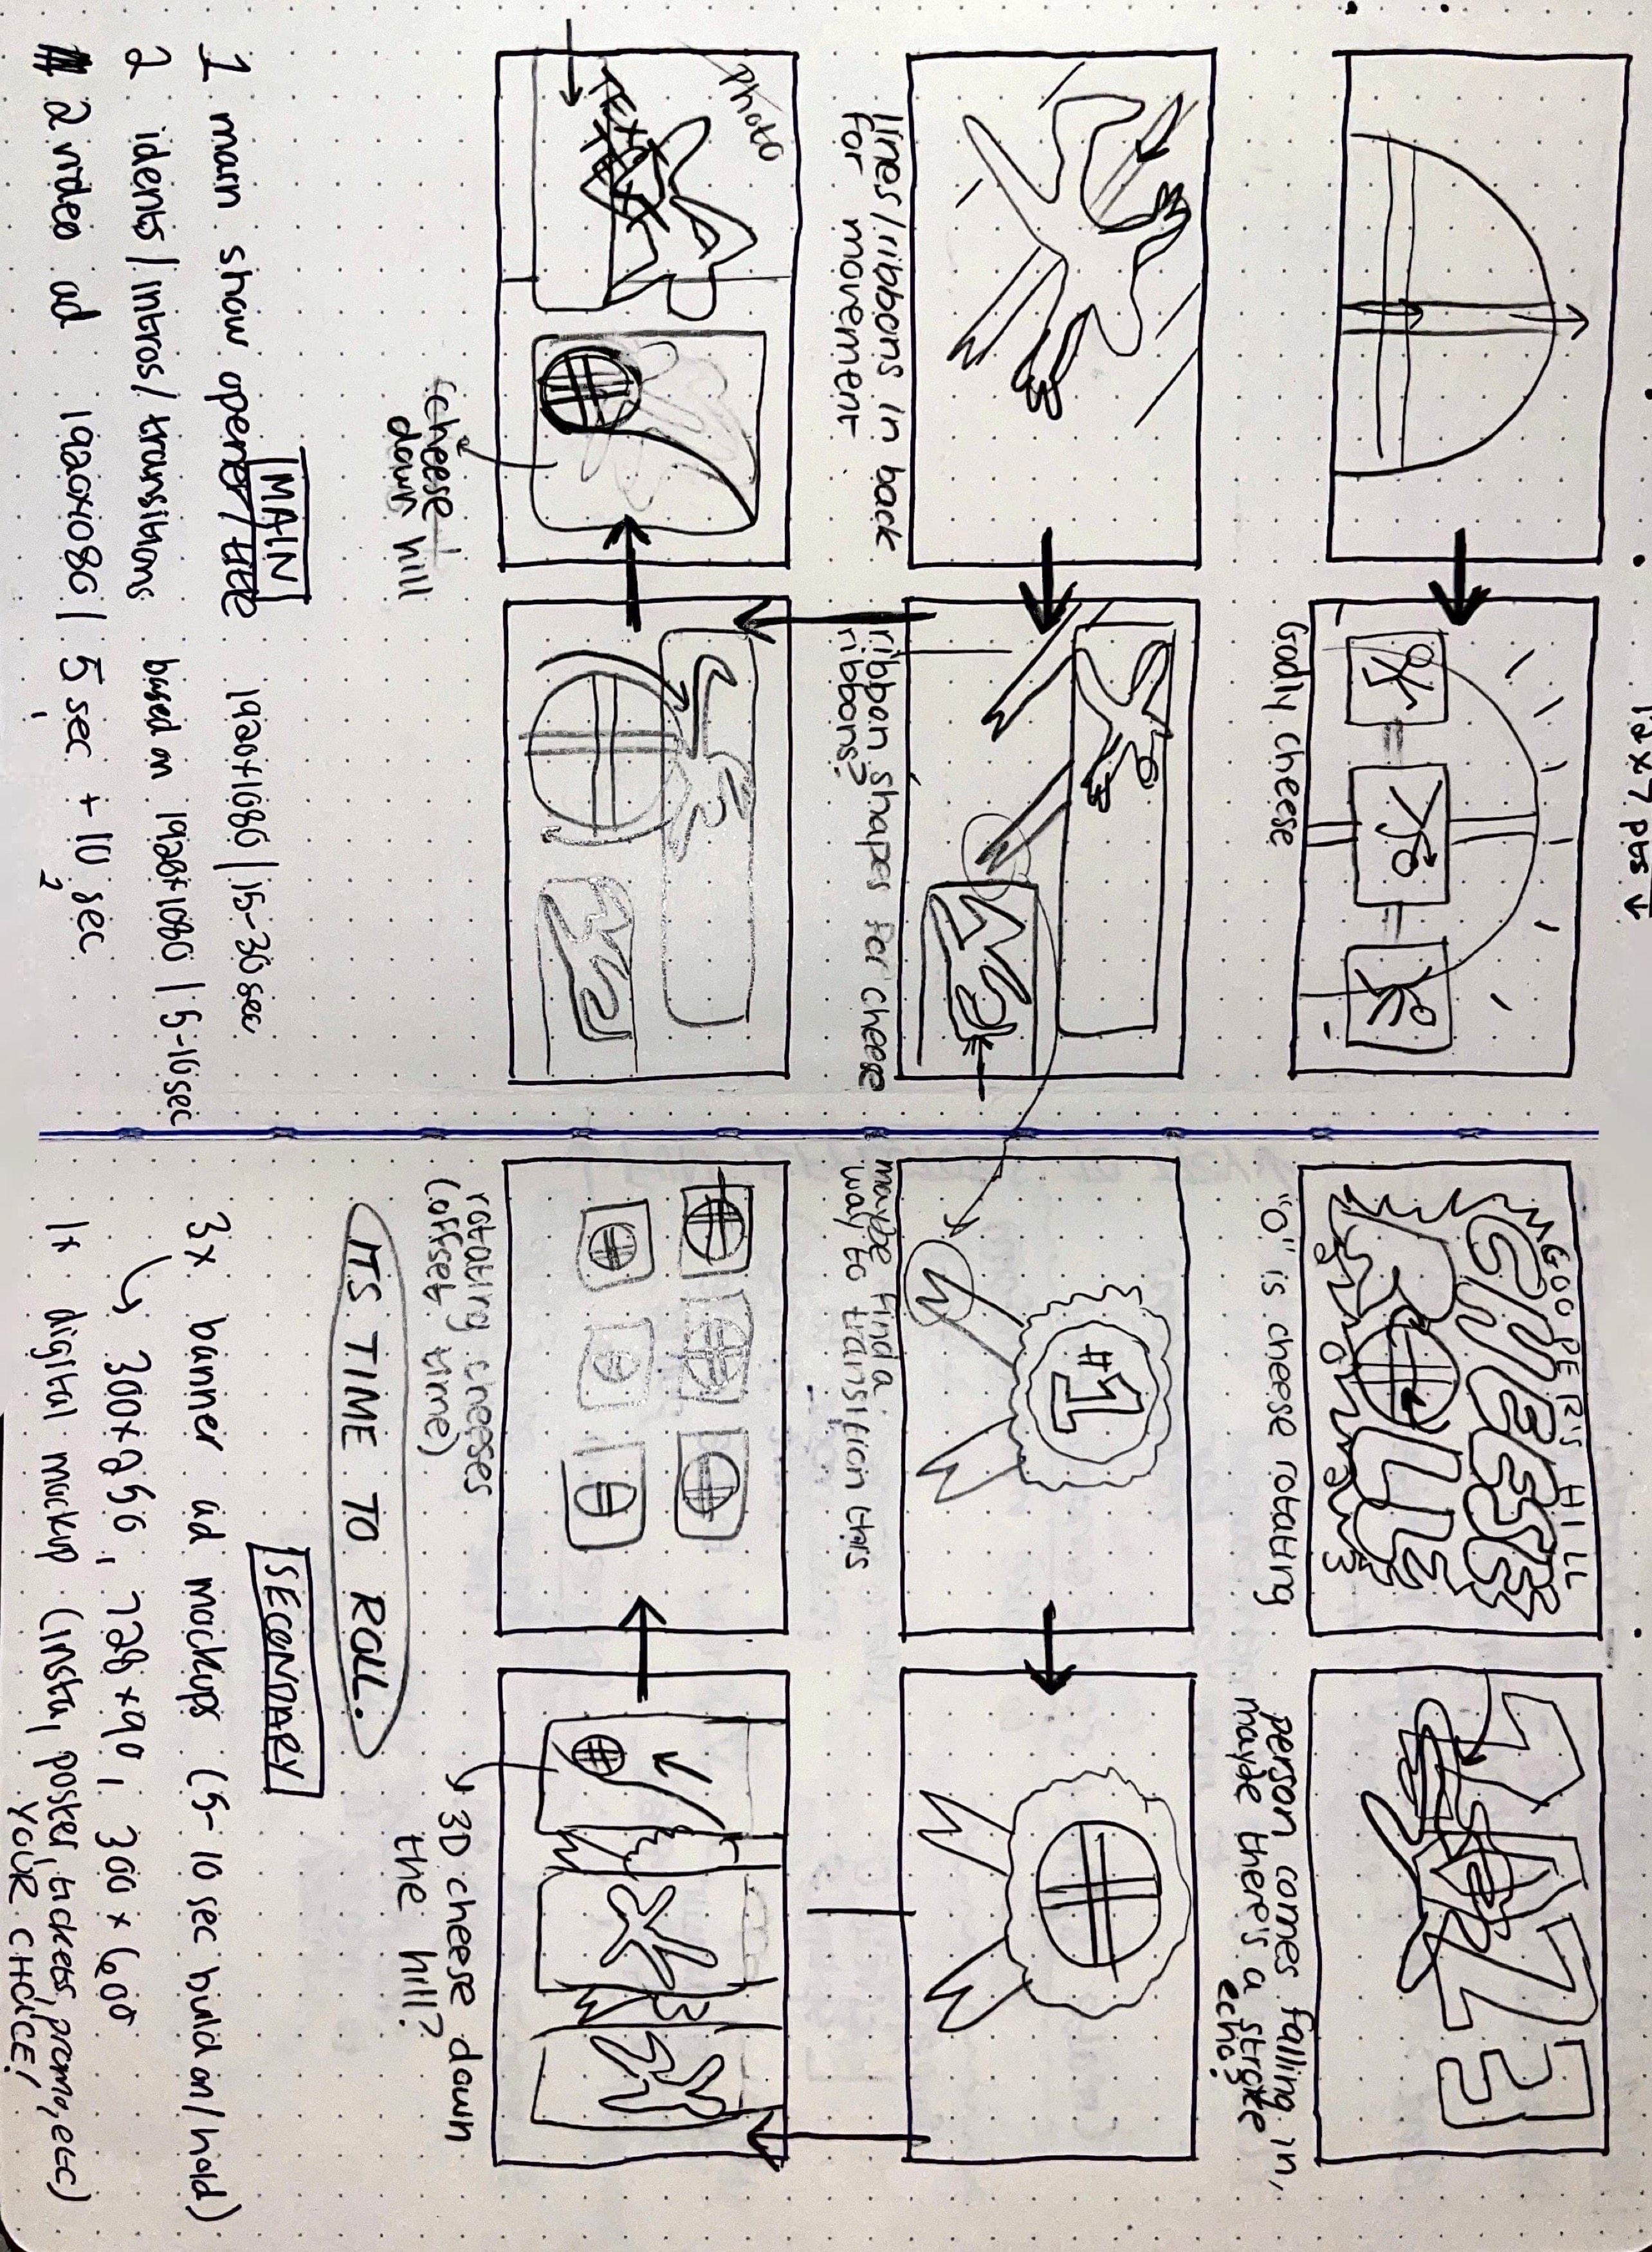 12 x 7 pts ↓
GOOPER'S HILL
CHEESE
ROLLE
Godly cheese
"O" is cheese rotating
person comes falling in,
maybe there's a stroke
echo?
#1
lines/ribbons in back
for movement
ribbon shapes for cheese
ribbons?
maybe find a
way to transition this
Photo
TEXT
cheese
down hill
rotating cheeses
(offset time)
3D cheese down
the hill?
ITS TIME TO ROLL.
MAIN
1 main show opener/title 1920x1080 | 15-30 sec
2 idents/intros/transitions based on 1920x1080 | 5-10 sec
2 video ad 1920x1080 | 5 sec + 10 sec
1 2
SECONDARY
3x banner ad mockups (5-10 sec build on/hold)
↳ 300x856, 728x90, 300x600
1x digital mockup (insta, poster, tickets, promo, etc)
YOUR CHOICE!